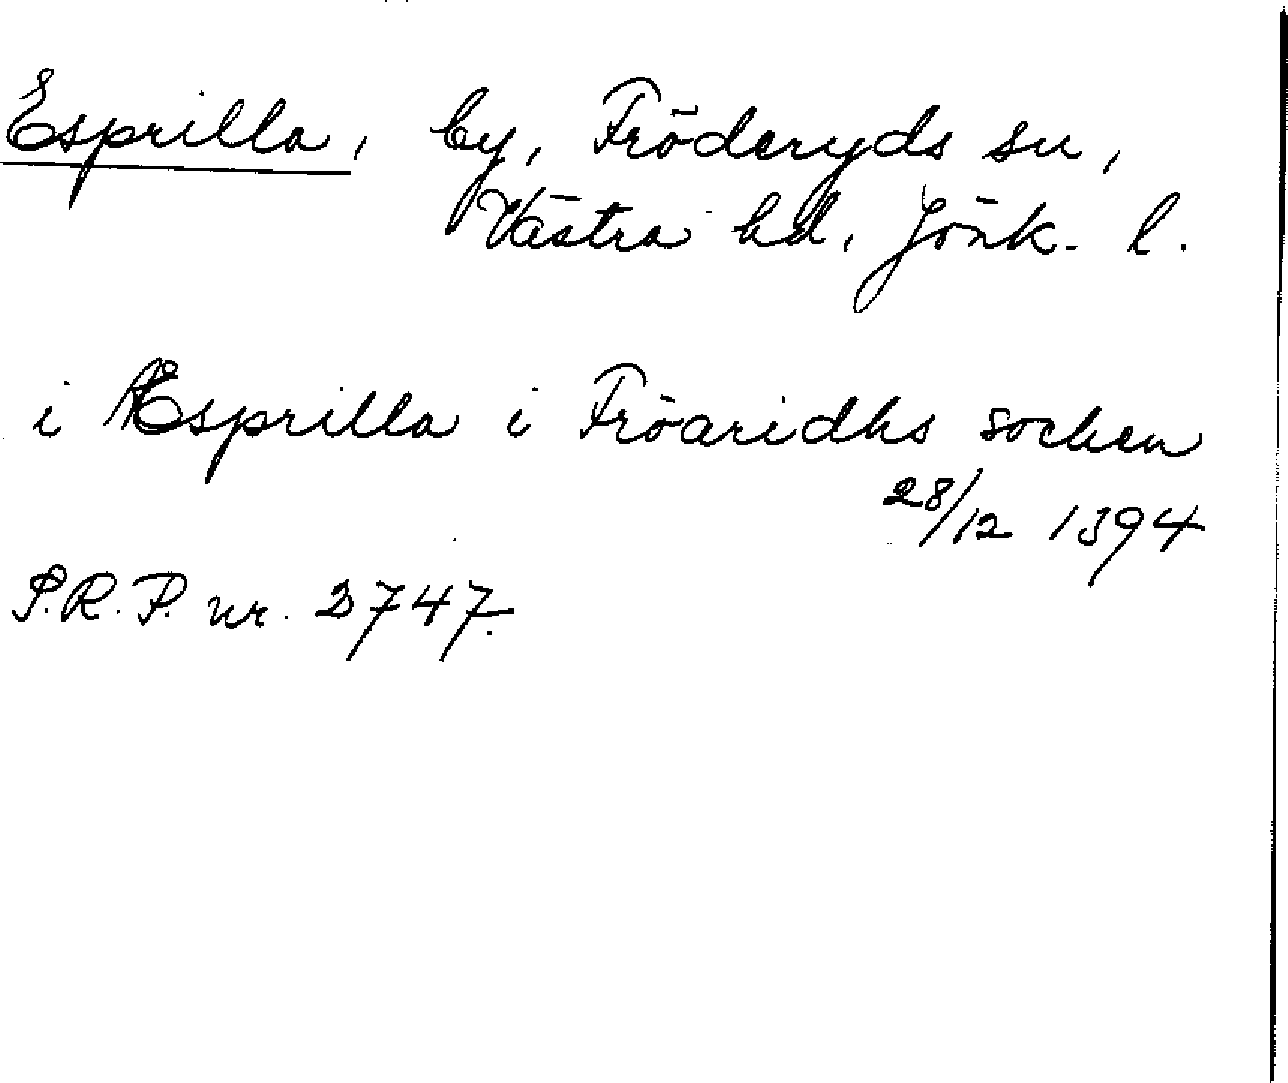 Esprilla, by, Fröderyds sn,
Västra hd, Jönk. l.
i Æsprilla i Fröaridhs sochen
28/12 1394
S.R.P. nr. 2747.